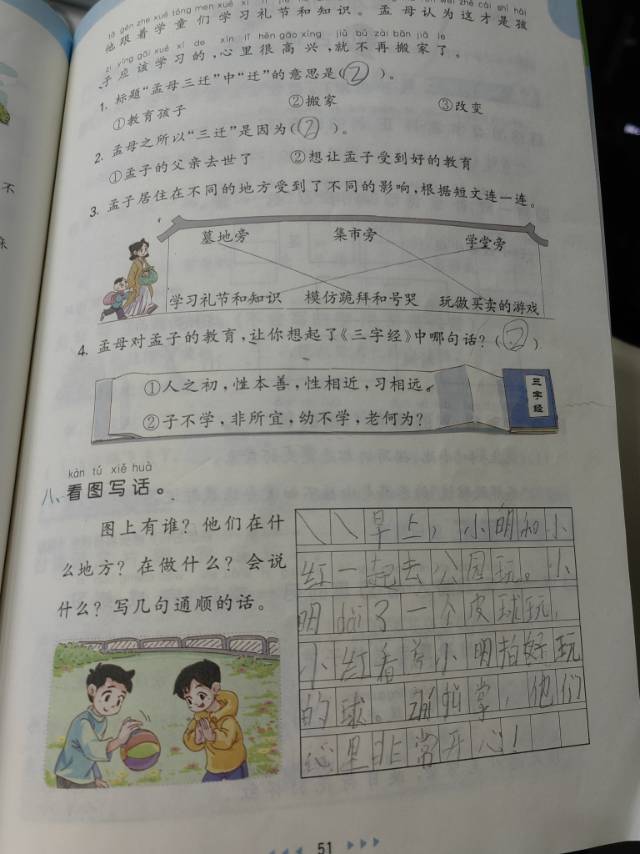 他跟着学童们学习礼节和知识。孟母认为这才是孩
zǐ yīng gāi xué xí de xīn lǐ hěn gāo xìng jiù bú zài bān jiā le
子应该学习的,心里很高兴,就不再搬家了。
1. 标题“孟母三迁”中“迁”的意思是(②)。
①教育孩子 ②搬家 ③改变
2. 孟母之所以“三迁”是因为(②)。
①孟子的父亲去世了 ②想让孟子受到好的教育
3. 孟子居住在不同的地方受到了不同的影响,根据短文连一连。
墓地旁 集市旁 学堂旁
学习礼节和知识 模仿跪拜和号哭 玩做买卖的游戏
4. 孟母对孟子的教育,让你想起了《三字经》中哪句话?(②)
①人之初,性本善,性相近,习相远。
②子不学,非所宜,幼不学,老何为?
三字经
kàn tú xiě huà
八、看图写话。
图上有谁?他们在什
么地方?在做什么?会说
什么?写几句通顺的话。
早上,小明和小
红一起去公园玩。小
明dài了一个皮球玩,
小红看着小明拍好玩
的球。拍掌,他们
心里非常开心!
51